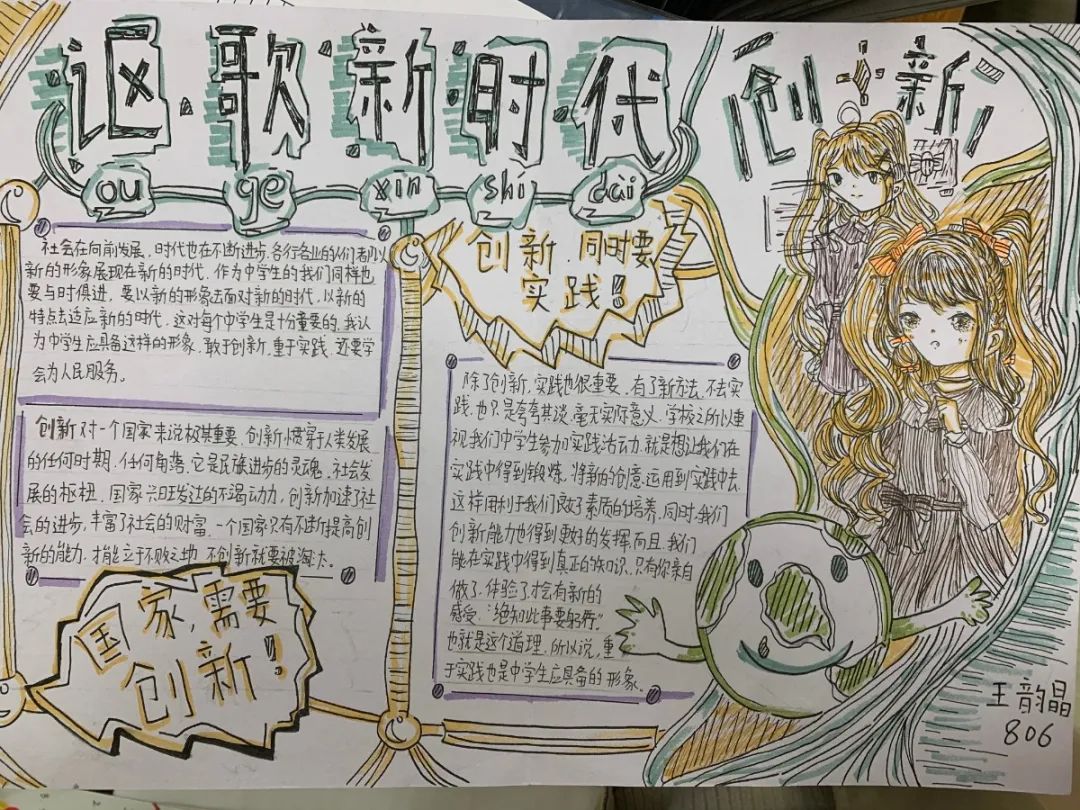 讴·歌·新·时·代
创·新
ou ge xin shi dài
社会在向前发展，时代也在不断进步，各行各业的人们都以
新的形象展现在新的时代，作为中学生的我们同样也
要与时俱进，要以新的形象去面对新的时代，以新的
特点去适应新的时代，这对每个中学生是十分重要的。我认
为中学生应具备这样的形象，敢于创新，重于实践，还要学
会为人民服务。
创新对一个国家来说极其重要，创新惯穿于人类发展
的任何时期，任何角落，它是民族进步的灵魂，社会发
展的枢杻，国家兴旺发达的不渴动力，创新加速了社
会的进步，丰富了社会的财富，一个国家只有不断提高创
新的能力，才能立于不败之地，不创新就要被淘汰。
国家，需要
创新！
创新，同时要
实践！
除了创新，实践也很重要，有了新方法，不去实
践，也只是夸夸其谈，毫无实际意义，学校之所以重
视我们中学生参加实践活动，就是想让我们在
实践中得到锻炼，将新的创意运用到实践中去，
这样用利于我们良好素质的培养，同时，我们
创新能力也得到更好的发挥，而且，我们
能在实践中得到真正的知识，只有你亲自
做了，体验了才会有新的
感受，“绝知此事要躬行”
也就是这个道理，所以说，重
于实践也是中学生应具备的形象。
王韵晶
806